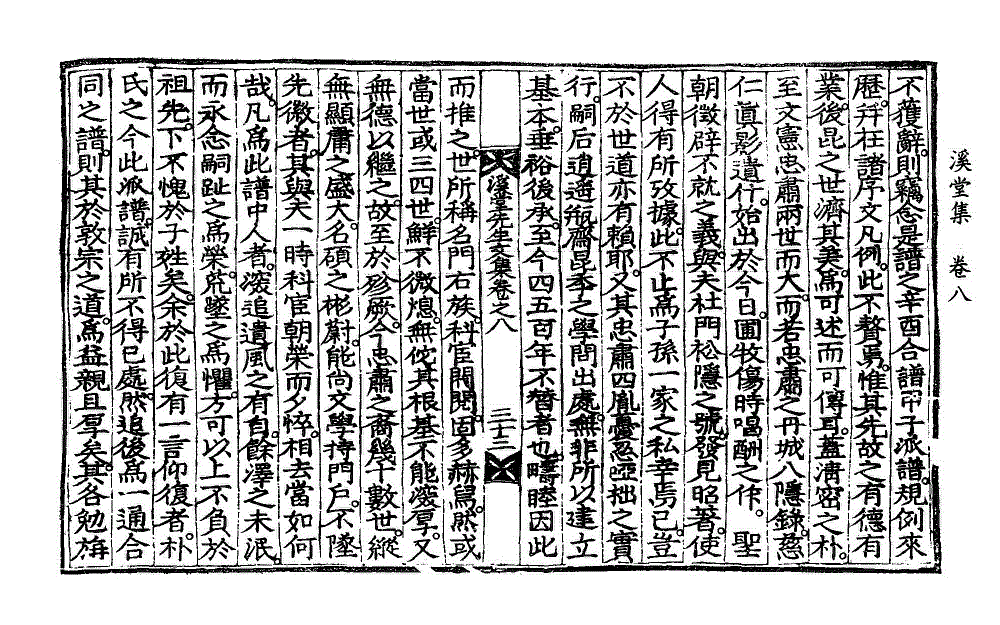 溪堂集　卷八
不獲辭。則竊念是譜之辛酉合譜甲子派譜。規例來
歷。幷在諸序文凡例。此不贅焉。惟其先故之有德有
業。後昆之世濟其美。爲可述而可傳耳。蓋淸密之朴。
至文憲忠肅兩世而大。而若忠肅之丹城八隱錄。慈
仁眞影遺行。始出於今日。圃牧傷時唱酬之作。聖
朝徵辟不就之義。與夫杜門松隱之號。發見昭著。使
人得有所攷據。此不止爲子孫一家之私幸焉已。豈
不於世道亦有賴耶。又其忠肅四胤憂忽啞拙之實
行。嗣后逍遙甁齋昆季之學問出處。無非所以建立
基本。垂裕後承。至今四五百年不替者也。疇睦因此
溪堂先生文集卷之八　三十三
而推之。世所稱名門右族。科宦閥閱。固多赫舃。然或
當世或三四世。鮮不微熄。無佗其根基不能深厚。又
無德以繼之。故至於殄厥。今忠肅之裔幾千數世。縱
無顯庸之盛大。名碩之彬蔚。能尙文學持門戶。不墜
先徽者。其與夫一時科宦朝榮而夕悴。相去當如何
哉。凡爲此譜中人者。深追遺風之有自。餘澤之未泯。
而永念嗣趾之爲榮。荒墜之爲懼。方可以上不負於
祖先。下不愧於子姓矣。余於此復有一言仰復者。朴
氏之今此派譜。誠有所不得已處。然追後爲一通合
同之譜。則其於敦宗之道。爲益親且厚矣。其各勉旃